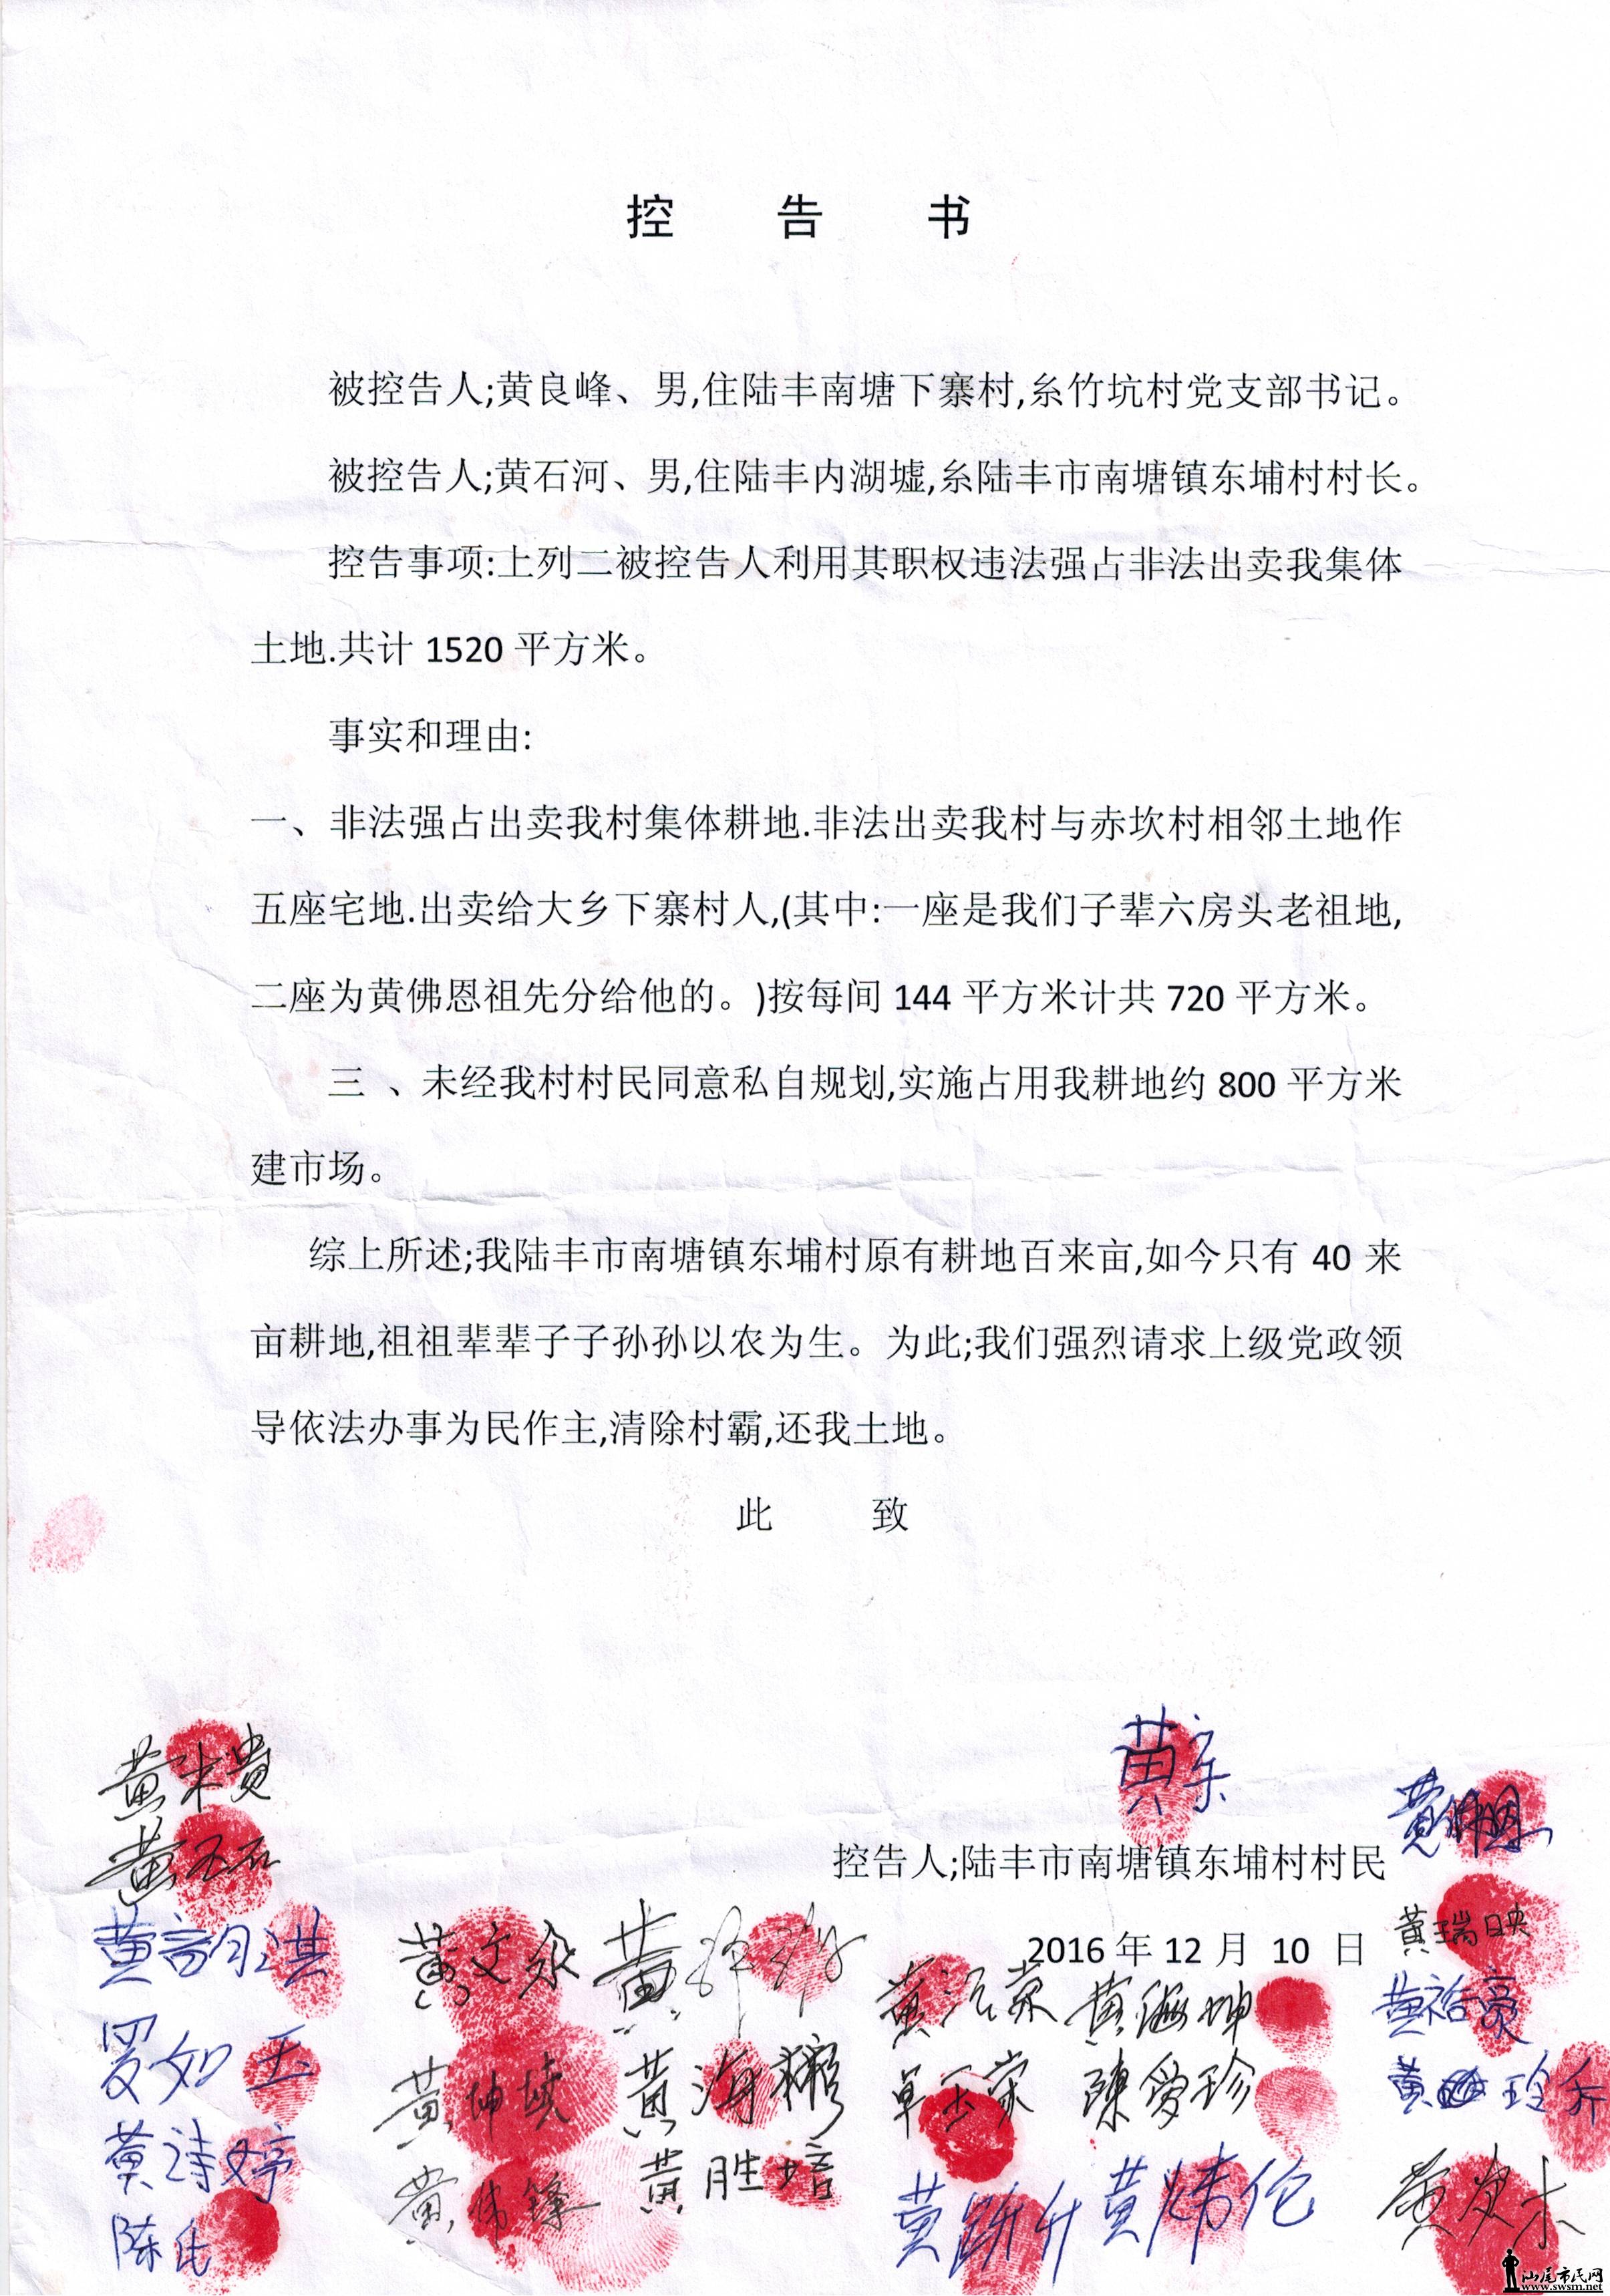 控 告 书
被控告人;黄良峰、男,住陆丰南塘下寨村,糸竹坑村党支部书记。
被控告人;黄石河、男,住陆丰内湖墟,糸陆丰市南塘镇东埔村村长。
控告事项:上列二被控告人利用其职权违法强占非法出卖我集体
土地.共计 1520 平方米。
事实和理由:
一、非法强占出卖我村集体耕地.非法出卖我村与赤坎村相邻土地作
五座宅地.出卖给大乡下寨村人,(其中:一座是我们子辈六房头老祖地,
二座为黄佛恩祖先分给他的。)按每间 144 平方米计共 720 平方米。
三 、未经我村村民同意私自规划,实施占用我耕地约 800 平方米
建市场。
综上所述;我陆丰市南塘镇东埔村原有耕地百来亩,如今只有 40 来
亩耕地,祖祖辈辈子子孙孙以农为生。为此;我们强烈请求上级党政领
导依法办事为民作主,清除村霸,还我土地。
此 致
黄
黄佛恩
控告人;陆丰市南塘镇东埔村村民
2016 年 12 月 10 日
黄木贵
黄
黄
罗如玉
黄诗婷
陈氏
黄文
黄坤
黄伟锋
黄
黄海
黄胜培
黄
黄海坤
陈爱珍
黄炜伦
黄瑞映
黄裕豪
黄 玲
黄
汕尾市民网
www.swsm.net